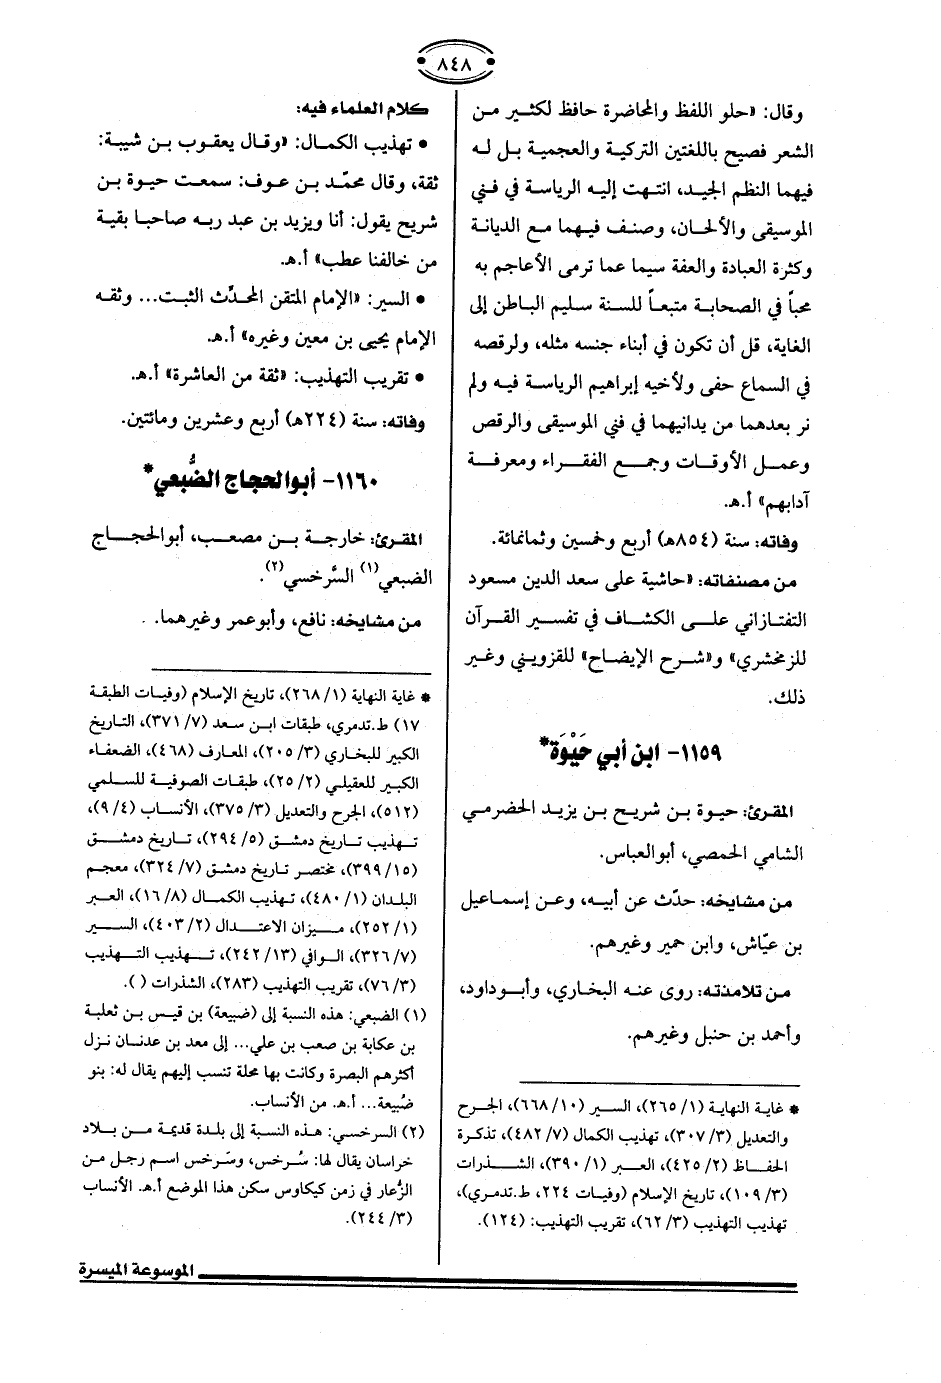 ٨٤٨
وقال: «حلو اللفظ والمحاضرة حافظ لكثير من
الشعر فصيح باللغتين التركية والعجمية بل له
فيهما النظم الجيد، انتهت إليه الرياسة في فني
الموسيقى والألحان، وصنف فيهما مع الديانة
وكثرة العبادة والعفة سيما عما ترمى الأعاجم به
محباً في الصحابة متبعاً للسنة سليم الباطن إلى
الغاية، قل أن تكون في أبناء جنسه مثله، ولرقصه
في السماع حفى ولأخيه إبراهيم الرياسة فيه ولم
نر بعدهما من يدانيهما في فني الموسيقى والرقص
وعمل الأوقات وجمع الفقراء ومعرفة
آدابهم» أ.هـ.
وفاته: سنة (٨٥٤هـ) أربع وخمسين وثمانمائة.
من مصنفاته: «حاشية على سعد الدين مسعود
التفتازاني على الكشاف في تفسير القرآن
للزمخشري» و«شرح الإيضاح» للقزويني وغير
ذلك.
١١٥٩- ابن أبي حَيْوَة*
المقرئ: حيوة بن شريح بن يزيد الحضرمي
الشامي الحمصي، أبو العباس.
من مشايخه: حدّث عن أبيه، وعن إسماعيل
بن عيّاش، وابن حمير وغيرهم.
من تلامذته: روى عنه البخاري، وأبو داود،
وأحمد بن حنبل وغيرهم.
* غاية النهاية (١/ ٢٦٥)، السير (١٠/ ٦٦٨)، الجرح
والتعديل (٣/ ٣٠٧)، تهذيب الكمال (٧/ ٤٨٢)، تذكرة
الحفاظ (٢/ ٤٢٥)، العبر (١/ ٣٩٠)، الشذرات
(٣/ ١٠٩)، تاريخ الإسلام (وفيات ٢٢٤، ط.تدمري)،
تهذيب التهذيب (٣/ ٦٢)، تقريب التهذيب: (١٢٤).
كلام العلماء فيه:
• تهذيب الكمال: «وقال يعقوب بن شيبة:
ثقة، وقال محمّد بن عوف: سمعت حيوة بن
شريح يقول: أنا ويزيد بن عبد ربه صاحبا بقية
من خالفنا عطب» أ.هـ.
• السير: «الإمام المتقن المحدّث الثبت... وثقه
الإمام يحيى بن معين وغيره» أ.هـ.
• تقريب التهذيب: «ثقة من العاشرة» أ.هـ.
وفاته: سنة (٢٢٤هـ) أربع وعشرين ومائتين.
١١٦٠- أبو الحجاج الضُّبعي*
المقرئ: خارجة بن مصعب، أبو الحجاج
الضبعي(١) السَّرخسي(٢).
من مشايخه: نافع، وأبو عمر وغيرهما.
* غاية النهاية (١/ ٢٦٨)، تاريخ الإسلام (وفيات الطبقة
١٧) ط.تدمري، طبقات ابن سعد (٧/ ٣٧١)، التاريخ
الكبير للبخاري (٣/ ٢٠٥)، المعارف (٤٦٨)، الضعفاء
الكبير للعقيلي (٢/ ٢٥)، طبقات الصوفية للسلمي
(٥١٢)، الجرح والتعديل (٣/ ٣٧٥)، الأنساب (٤/ ٩)،
تهذيب تاريخ دمشق (٥/ ٢٩٤)، تاريخ دمشق
(١٥/ ٣٩٩)، مختصر تاريخ دمشق (٧/ ٣٢٤)، معجم
البلدان (١/ ٤٨٠)، تهذيب الكمال (٨/ ١٦)، العبر
(١/ ٢٥٢)، ميزان الاعتدال (٢/ ٤٠٣)، السير
(٧/ ٣٢٦)، الوافي (١٣/ ٢٤٢)، تهذيب التهذيب
(٣/ ٧٦)، تقريب التهذيب (٢٨٣)، الشذرات ( ).
(١) الضبعي: هذه النسبة إلى (ضبيعة) بن قيس بن ثعلبة
بن عكابة بن صعب بن علي... إلى معد بن عدنان نزل
أكثرهم البصرة وكانت بها محلة تنسب إليهم يقال له: بنو
ضُبيعة... أ.هـ. من الأنساب.
(٢) السرخسي: هذه النسبة إلى بلدة قديمة من بلاد
خراسان يقال لها: سُرخس، وسَرخس اسم رجل من
الزُّعار في زمن كيكاوس سكن هذا الموضع أ.هـ. الأنساب
(٣/ ٢٤٤).
الموسوعة الميسرة